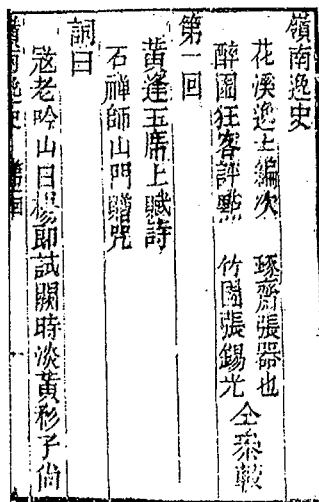 嶺南逸史
花溪逸士編次 琢齋張器也
醉園狂客評點 竹園張錫光 仝叅較
第一回
黃逢玉席上賦詩
石禪師山門贈咒
詞曰
寇老吟山日楊郎試闕時淡黃衫子尙
嶺南逸史